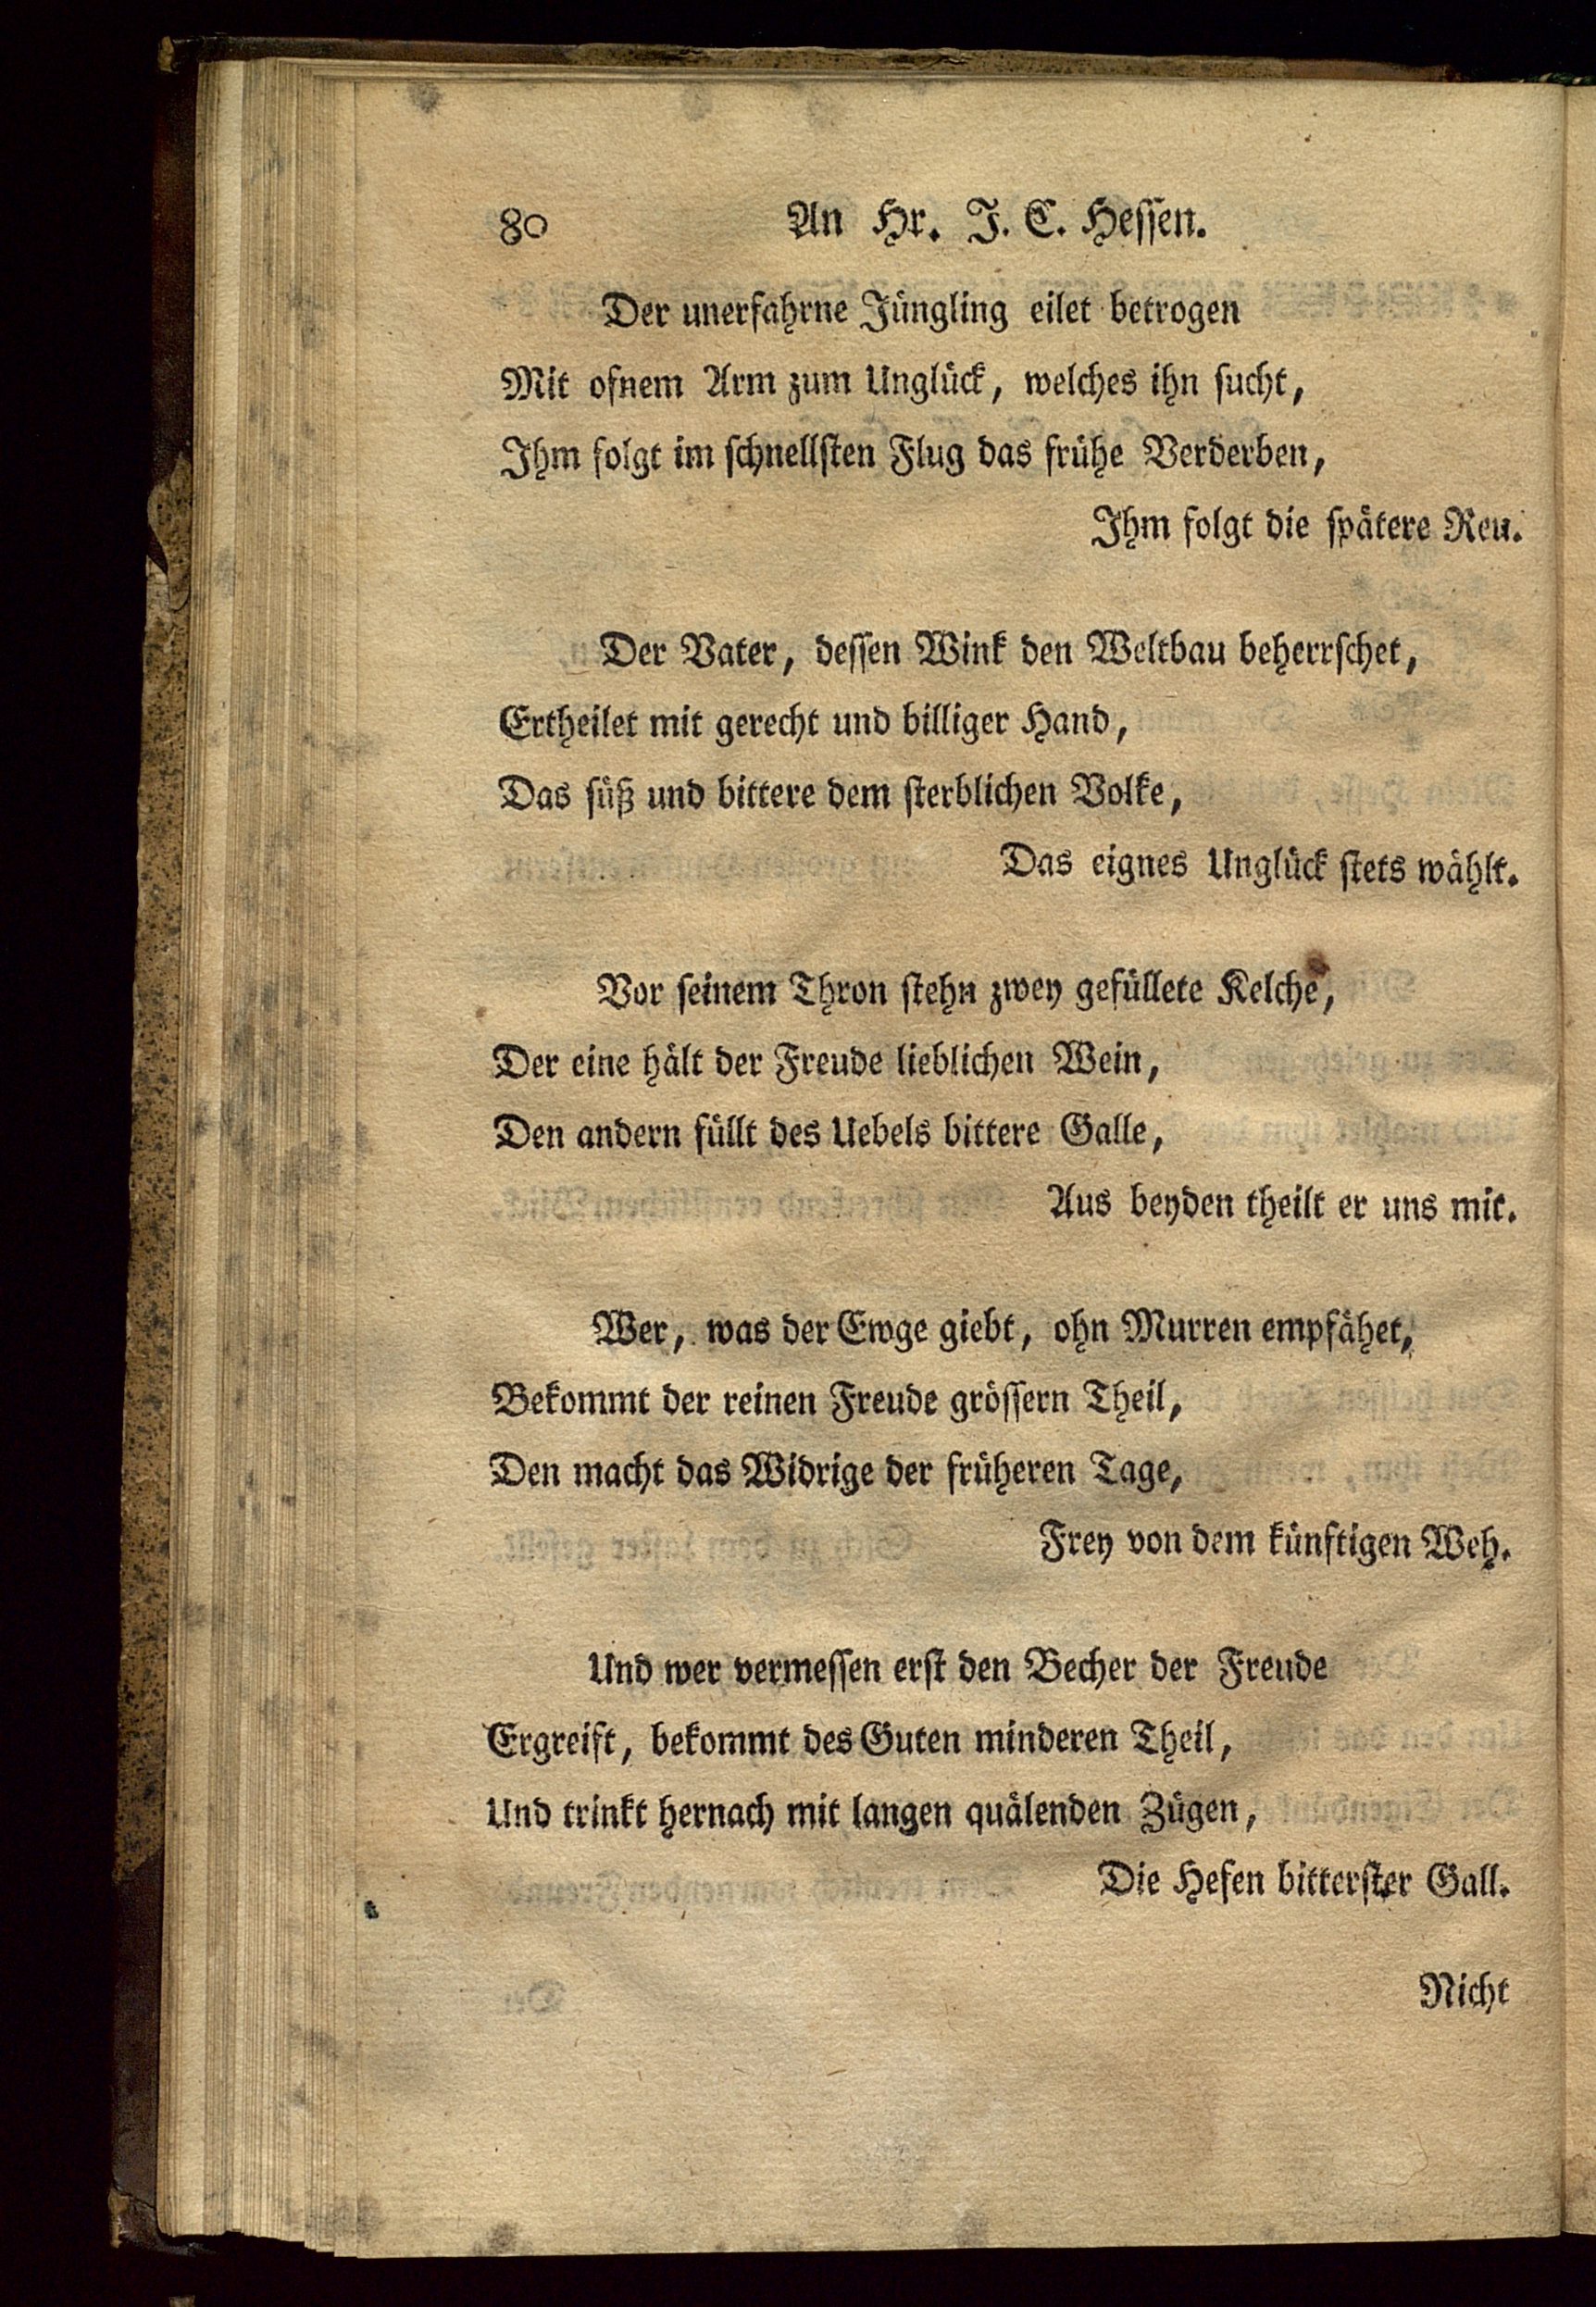 80 An Hr. J. C. Hessen.
Der unerfahrne Jüngling eilet betrogen
Mit ofnem Arm zum Unglück, welches ihn sucht,
Ihm folgt im schnellsten Flug das frühe Verderben,
Ihm folgt die spätere Reu.
Der Vater, dessen Wink den Weltbau beherrschet,
Ertheilet mit gerecht und billiger Hand,
Das süß und bittere dem sterblichen Volke,
Das eignes Unglück stets wählt.
Vor seinem Thron stehn zwey gefüllete Kelche,
Der eine hält der Freude lieblichen Wein,
Den andern füllt des Uebels bittere Galle,
Aus beyden theilt er uns mit.
Wer, was der Ewge giebt, ohn Murren empfähet,
Bekommt der reinen Freude grössern Theil,
Den macht das Widrige der früheren Tage,
Frey von dem künftigen Weh.
Und wer vermessen erst den Becher der Freude
Ergreift, bekommt des Guten minderen Theil,
Und trinkt hernach mit langen quälenden Zügen,
Die Hefen bitterster Gall.
Nicht